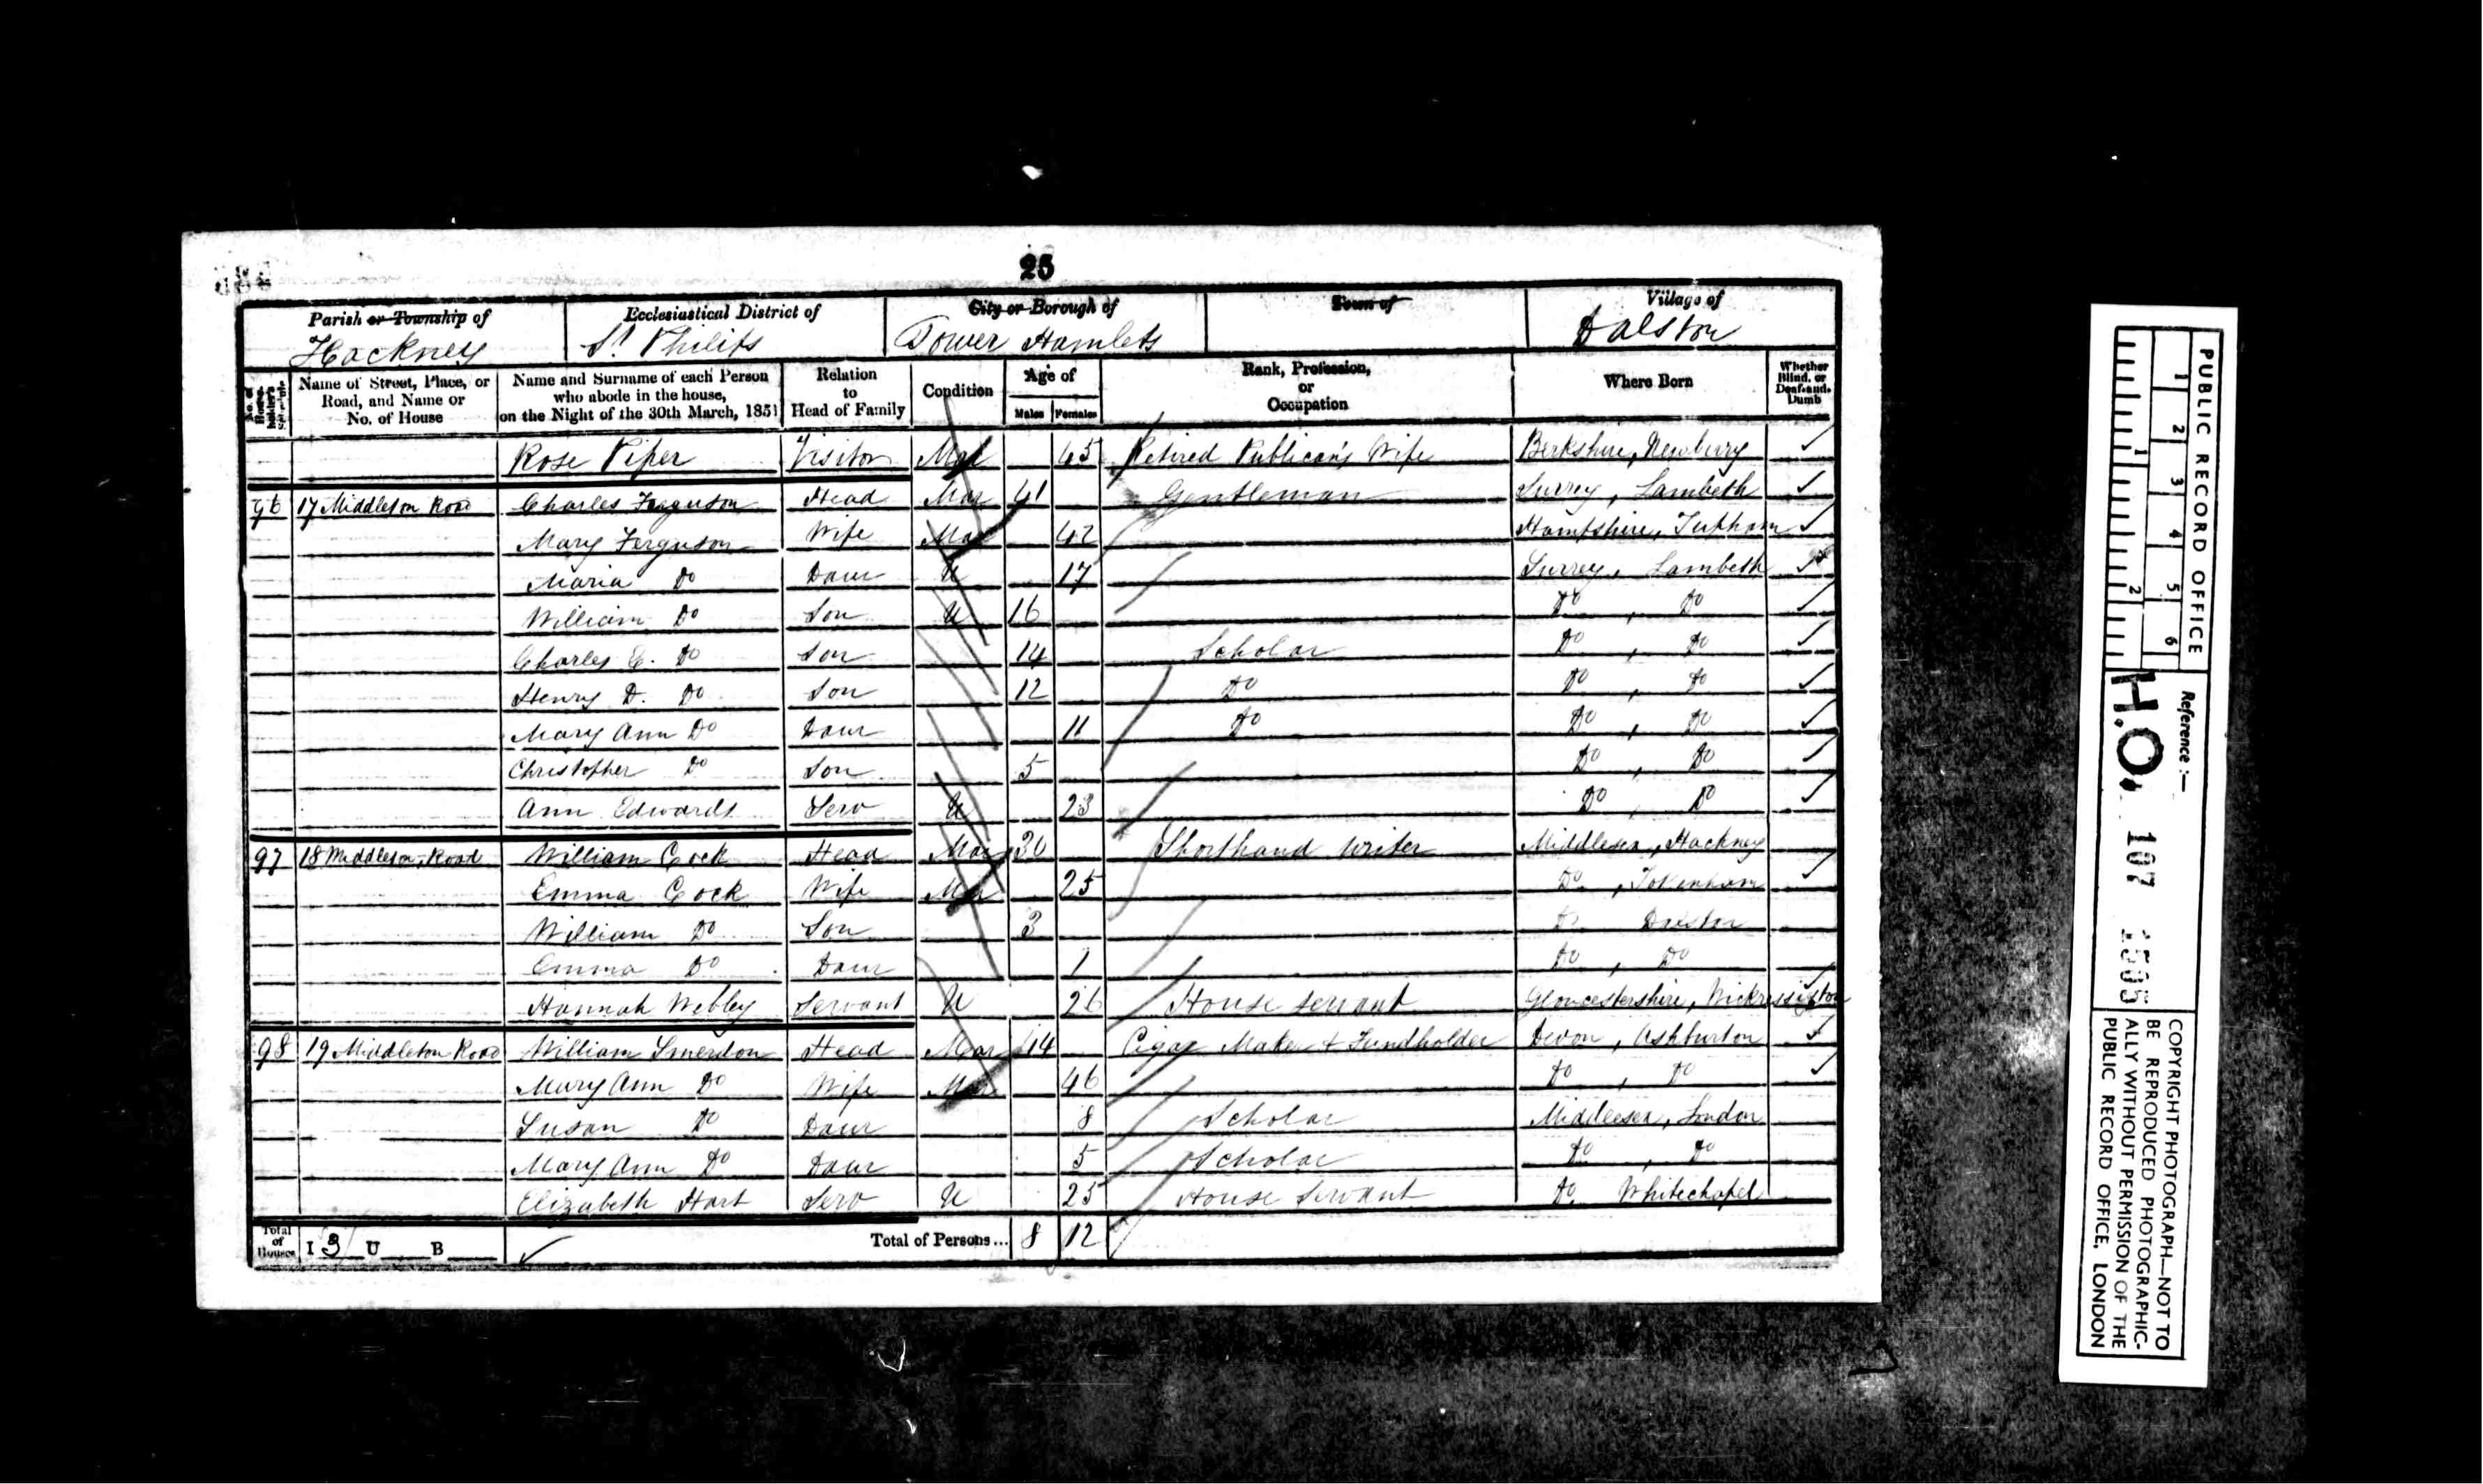 25
Parish or Township of Hackney
Ecclesiastical District of St Philips
City or Borough of Tower Hamlets
Town of
Village of Dalston
No. of House-holder's Schedule
Name of Street, Place, or Road, and Name or No. of House
Name and Surname of each Person who abode in the house, on the Night of the 30th March, 1851
Relation to Head of Family
Condition
Age of Males Females
Rank, Profession, or Occupation
Where Born
Whether Blind, or Deaf-and-Dumb
Rose Piper Visitor Mar 45 Retired Publican's Wife Berkshire, Newburry
96 17 Middleton Road Charles Ferguson Head Mar 41 Gentleman Surrey, Lambeth
Mary Ferguson Wife Mar 42 Hampshire,
Maria Do Daur U 17 Surrey, Lambeth
William Do Son U 16 Do, Do
Charles E. Do Son 14 Scholar Do, Do
Henry D. Do Son 12 Do Do, Do
Mary Ann Do Daur 11 Do Do, Do
Christopher Do Son 5 Do, Do
Ann Edwards Serv U 23 Do, Do
97 18 Middleton Road William Cock Head Mar 30 Shorthand Writer Middlesex, Hackney
Emma Cock Wife Mar 25 Do, Totenham
William Do Son 3 Do Dalston
Emma Do Daur 1 Do, Do
Hannah Webley Servant U 26 House Servant Gloucestershire,
98 19 Middleton Road William Smerdon Head Mar 44 Cigar Maker & Fundholder Devon, Ashburton
Mary Ann Do Wife Mar 46 Do, Do
Susan Do Daur 8 Scholar Middlesex, London
Mary Ann Do Daur 5 Scholar Do, Do
Elizabeth Hart Serv U 25 House Servant Do Whitechapel
Total of Houses I 3 U B Total of Persons... 8 12
PUBLIC RECORD OFFICE
1 2 3 4 5 6
1 2
Reference :—
H.O. 107 1505
COPYRIGHT PHOTOGRAPH—NOT TO
BE REPRODUCED PHOTOGRAPHIC-
ALLY WITHOUT PERMISSION OF THE
PUBLIC RECORD OFFICE, LONDON